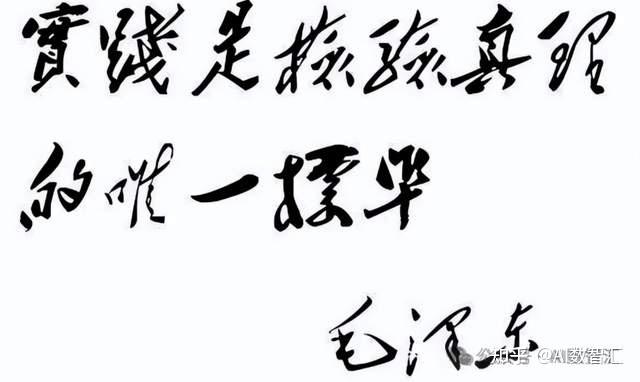 實踐是檢驗真理
的唯一標準
毛澤东
知乎 @AI数智汇